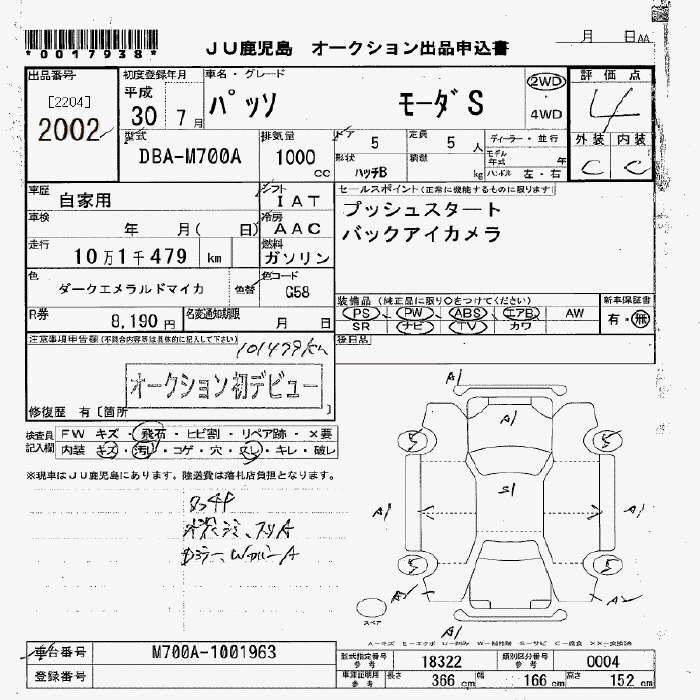 *0017938*
JU鹿児島 オークション出品申込書
月 日 AA
出品番号
[2204]
2002
初度登録年月
平成
30 7月
車名・グレード
パッソ モーダS
2WD
・
4WD
評価点
4
外装 内装
C C
型式
DBA-M700A
排気量
1000 cc
ドア
5
定員
5 人
形状
ハッチB
積載
kg
ディーラー・並行
モデル年式 年
ハンドル 左・右
車歴
自家用
シフト
IAT
セールスポイント(正常に機能するものに限ります)
プッシュスタート
バックアイカメラ
車検
年 月( 日)
冷房
AAC
走行
10万1千479 km
燃料
ガソリン
色
ダークエメラルドマイカ
色替
色コード
G58
装備品(純正品に限り○をつけてください)
PS・PW・ABS・エアB・AW
SR ナビ・TV・カワ
新車保証書
有・無
R券
8,190円
名変通知期限
月 日
後日品
注意事項申告欄(不具合内容等は具体的に記入して下さい)
101479km
オークション初デビュー
修復歴 有〔箇所 〕
検査員記入欄
FW キズ・飛石・ヒビ割・リペア跡・×要
内装 キズ・汚れ・コゲ・穴・スレ・キレ・破レ
※現車はJU鹿児島にあります。陸送費は落札店負担となります。
A1
A1
S1
5 5
A1 A1
5 5
A2 A2
A1
スペア
A-キズ E-エクボ U-凹み W-補修跡 S-サビ C-腐食 XX-交換済
車台番号
M700A-1001963
登録番号
型式指定番号
参考
18322
類別区分番号
参考
0004
車庫証明用
参考
長さ
366 cm
幅
166 cm
高さ
152 cm